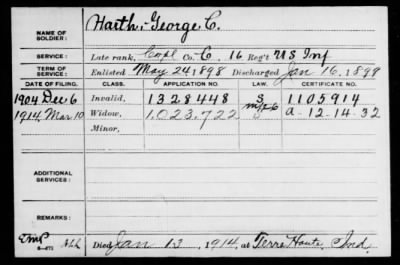 NAME OF SOLDIER: Harth, George C.
SERVICE: Late rank, Corpl Co. C, 16 Reg't U S Inf
TERM OF SERVICE: Enlisted May 24, 1898 Discharged Jan 16, 1899
DATE OF FILING. CLASS. APPLICATION NO. LAW. CERTIFICATE NO.
1904 Dec 6 Invalid, 1328448 S 1105914
1914, Mar 10 Widow, 1,023,722 a-12-14-32
Minor,
ADDITIONAL SERVICES:
REMARKS:
Died Jan 13, 1914, at Terre Haute, Ind.